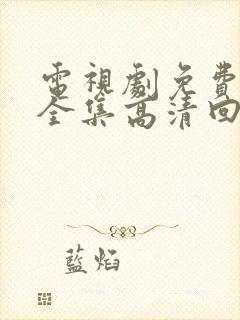 電視劇免費
全集高清回
藍焰